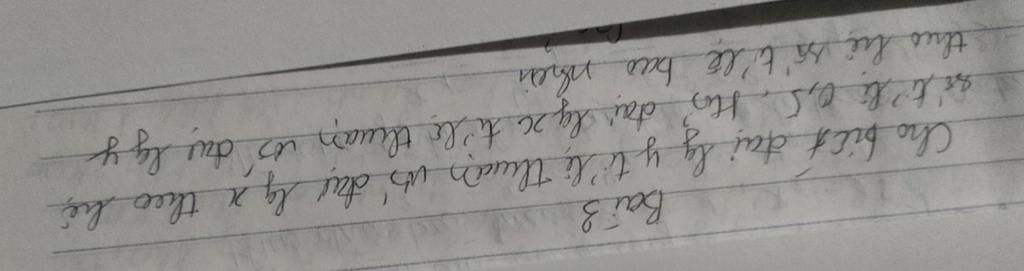 Bài 3
Cho biết đại lg y tỉ lệ thuận vs đại lg x theo hệ
số tỉ lệ 0,5. Hỏi đại lg x tỉ lệ thuận vs đại lg y
theo hệ số tỉ lệ bao nhiêu